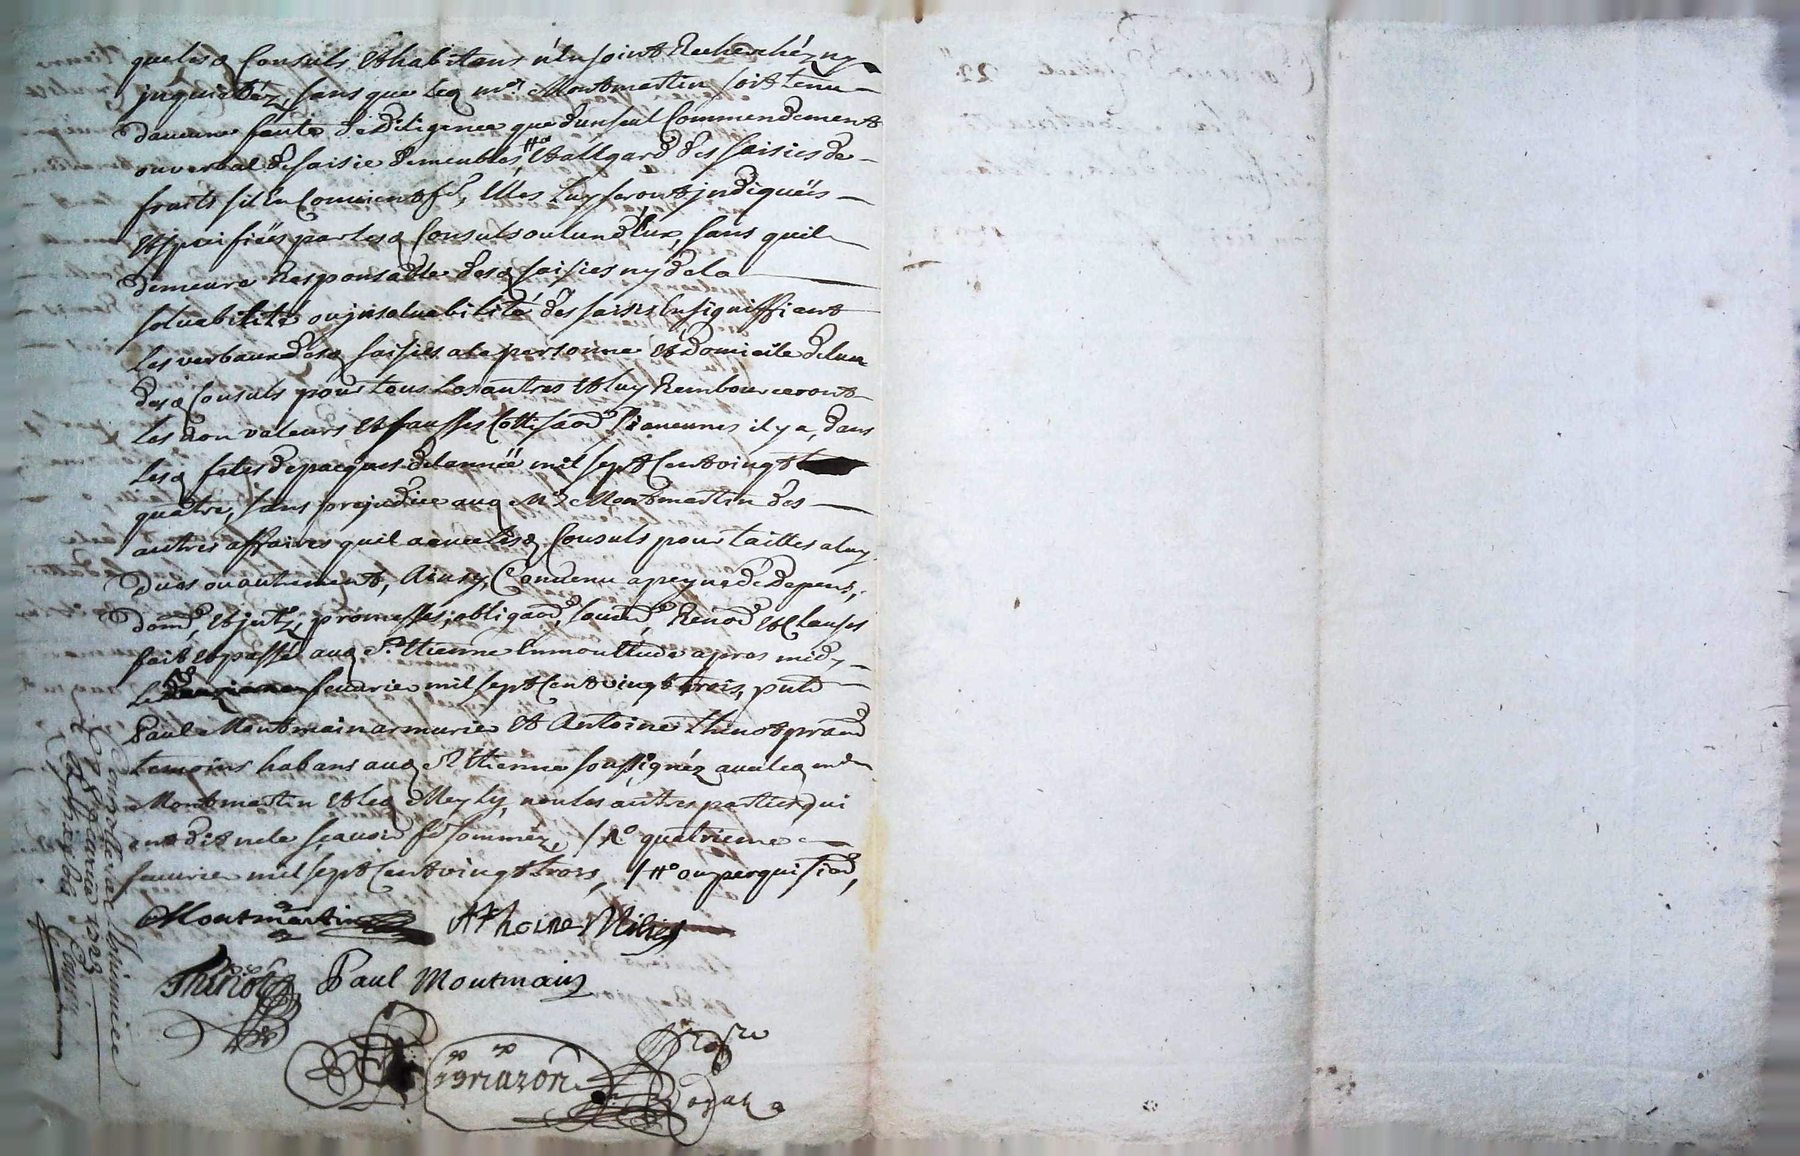 quelesd Consuls et habitans n'en soint Recherchéz ny
inquiettéz, sans que led mr Montmartin soit tenu
daucune faute de diligence que dun seul Commendement
ou verbal de saisie de meubles, et a lesgard des saisies de
fruits sil en Convient fe, Elles luy seront indiquéés
et speciffiéés par lesd Consuls ou lun d'Eux, sans quil
demeure Responsable desd saisies ny de la
soluabilité ou insoluabilité des saisis En signiffient
les verbaux desd saisies a la personne et domicile de lun
desd Consuls pour tous les autres et luy Rembourceront
les non valeurs et fausses Cottisaons si aucunes il y a, dans
lesd fetes de pacques de lannéé mil sept Cent vingt
quatre, sans prejudice aud Mr Montmartin des
autres affaires quil a avec lesd Consuls pour tailles a luy
dues ou autrement, Ainsy Convenu a peyne de depens,
dom, et intz, promesses, obligaons, soumd, Renond et Clauses
fait et passé aud St Etienne En mon Etude apres midy
le fevrier mil sept Cent vingt trois, pnts
Paul Montmain armurier et Antoine Thinot prad
temoins habans aud St Etienne soussignéz avec led mr
Montmartin et led Meyly, non les autres parties qui
ont dit ne le sçavoir de ce sommez, /1o quatrieme
fevrier mil sept Cent vingt trois, /# ou perquision,
Montmartin Anthoine
Thinot Paul Montmain
Controllé a St Etienne le
fevrier 1723